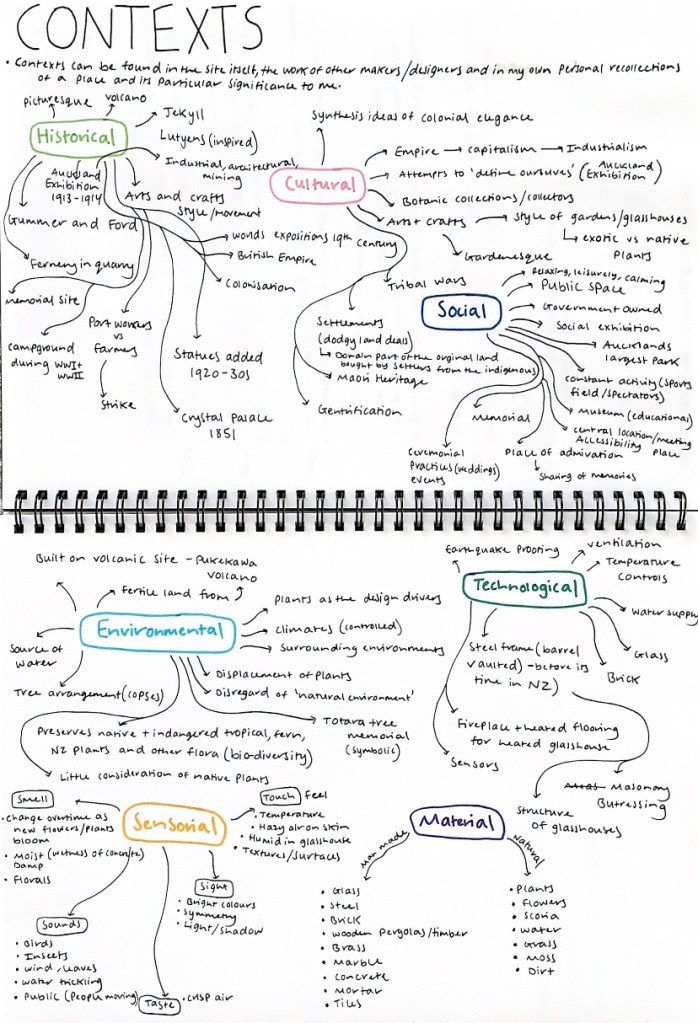 CONTEXTS
• Contexts can be found in the site itself, the work of other makers/designers and in my own personal recollections
of a place and its particular significance to me.
Historical
picturesque
volcano
Jekyll
Lutyens (inspired)
Industrial, architectural,
mining
Auckland
Exhibition
1913-1914
Arts and crafts
style/movement
Gummer and Ford
worlds expositions 19th century
British Empire
Colonisation
Fernery in quarry
memorial site
campground
during WWI+
WWII
Port workers
vs
farmers
Strike
Statues added
1920-30s
Crystal Palace
1851
Cultural
Synthesis ideas of colonial elegance
Empire → capitalism → Industrialism
Attempts to 'define ourselves' (Auckland
Exhibition)
Botanic collections/collectors
Arts + crafts → style of gardens/glasshouses
↳ exotic vs native
plants
Gardenesque
Tribal wars
Settlements
(dodgy land deals)
↳ Domain part of the original land
bought by settlers from the indigenous
Maori Heritage
Gentrification
Social
Relaxing, leisurely, calming
Public space
Government owned
Social exhibition
Aucklands
largest park
constant activity (sports
field/spectators)
Museum (educational)
central location/meeting
Accessibility place
Memorial
Place of admiration
↓ Sharing of memories
ceremonial
practices (weddings)
events
Environmental
Built on volcanic site - Pukekawa
volcano
fertile land from
Plants as the design drivers
climates (controlled)
Surrounding environments
Displacement of plants
Disregard of 'natural environment'
Totara tree
memorial
(symbolic)
Source of
water
Tree arrangement (copses)
Preserves native + indangered tropical, fern,
NZ plants and other flora (bio-diversity)
Little consideration of native plants
Technological
Earthquake proofing
ventilation
Temperature
controls
Water supply
Glass
Brick
Steel frame (barrel
vaulted) - before its
time in NZ)
Fireplace + heated flooring
for heated glasshouse
Sensors
Masonry
Butressing
Structure
of glasshouses
Sensorial
Smell
• Change overtime as
new flowers/plants
bloom
• Moist (wetness of concrete)
Damp
• Florals
Touch feel
• Temperature
• Hazy air on skin
• Humid in glasshouse
• Textures/surfaces
Sight
• Bright colours
• Symmetry
• Light/shadow
Sounds
• Birds
• Insects
• wind, leaves
• water trickling
• Public (people moving)
Taste
• crisp air
Material
Man made
• Glass
• Steel
• Brick
• wooden pergolas/timber
• Brass
• Marble
• concrete
• Mortar
• Tiles
Natural
• Plants
• Flowers
• Scoria
• Water
• Grass
• Moss
• Dirt